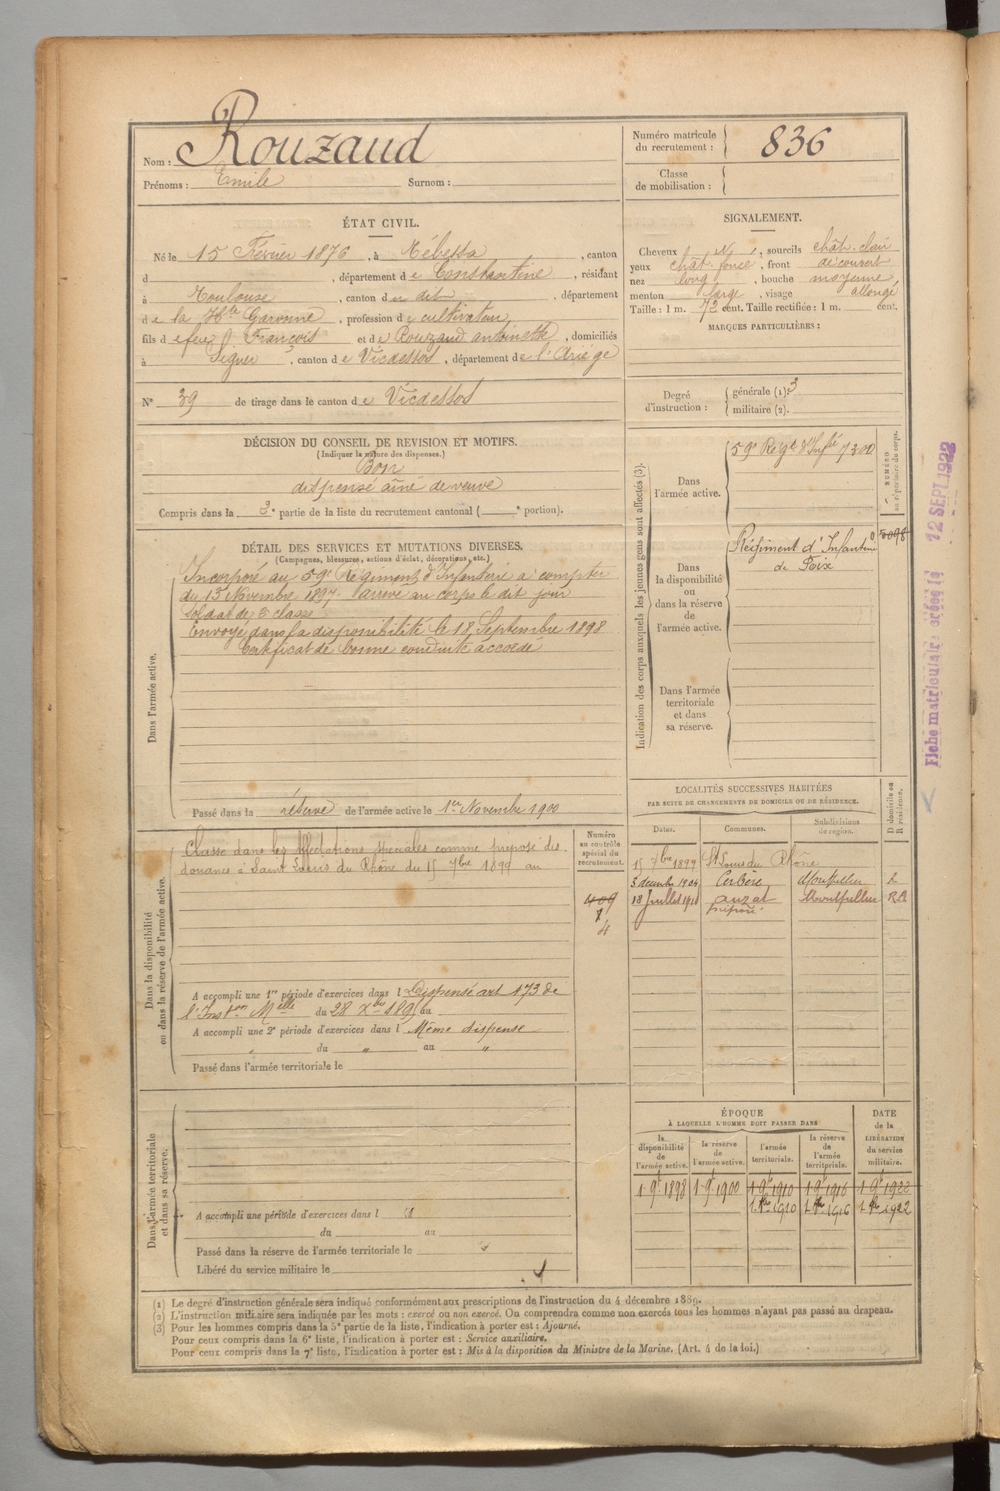 Nom : Rouzaud
Prénoms : Emile Surnom :
Numéro matricule du recrutement : 836
Classe de mobilisation :
ÉTAT CIVIL.
Né le 15 Février 1876, à Tébessa, canton
d , département de Constantine, résidant
à Toulouse, canton du dit, département
de la Hte Garonne, profession de cultivateur,
fils de feu François et de Rouzaud antoinette, domiciliés
à Siguer, canton de Vicdessos, département de l'Ariège
N° 39 de tirage dans le canton de Vicdessos
SIGNALEMENT.
Cheveux , sourcils chât. clair
yeux chât. foncé, front découvert
nez long, bouche moyenne
menton large, visage allongé
Taille : 1 m. 72 cent. Taille rectifiée : 1 m. cent.
MARQUES PARTICULIÈRES :
Degré d'instruction : générale (1). 3
militaire (2).
DÉCISION DU CONSEIL DE REVISION ET MOTIFS.
(Indiquer la nature des dispenses.)
Bon
dispensé aîné de veuve
Compris dans la 3e partie de la liste du recrutement cantonal ( e portion).
DÉTAIL DES SERVICES ET MUTATIONS DIVERSES.
(Campagnes, blessures, actions d'éclat, décorations, etc.)
Dans l'armée active.
Incorporé au 59e Régiment d'Infanterie à compter
du 13 Novembre 1897. arrivé au corps le dit jour
Soldat de 2e classe
Envoyé dans la disponibilité le 18 Septembre 1898
Certificat de bonne conduite accordé
Passé dans la réserve de l'armée active le 1er Novembre 1900
Indication des corps auxquels les jeunes gens sont affectés (3).
NUMÉRO au répertoire du corps.
Dans l'armée active.
59e Regt d'Infie 7300
Dans la disponibilité ou dans la réserve de l'armée active.
Régiment d'Infanterie
de Foix
Dans l'armée territoriale et dans sa réserve.
Fiche matriculaire créée le 12 SEPT 1922
Dans la disponibilité ou dans la réserve de l'armée active.
Numéro au contrôle spécial du recrutement.
Classé dans les affectations spéciales comme préposé des
douanes à Saint Louis du Rhône du 15 7bre 1899 au
409
4
A accompli une 1re période d'exercices dans l Dispensé art 173 de
l'Inston Melle du 28 Xbre 1895 au
A accompli une 2e période d'exercices dans l Même dispense
" du " au "
Passé dans l'armée territoriale le
LOCALITÉS SUCCESSIVES HABITÉES
PAR SUITE DE CHANGEMENTS DE DOMICILE OU DE RÉSIDENCE.
Dates. Communes. Subdivisions de région. D domicile ou R résidence.
15 7bre 1899 St Louis du Rhône
3 décembre 1904 Cerbère Montpellier R
18 Juillet 1911 auzat Montpellier RA
Dans l'armée territoriale et dans sa réserve.
A accompli une période d'exercices dans l
du au
Passé dans la réserve de l'armée territoriale le
Libéré du service militaire le
ÉPOQUE
À LAQUELLE L'HOMME DOIT PASSER DANS
DATE de la LIBÉRATION du service militaire.
la disponibilité de l'armée active. la réserve de l'armée active. l'armée territoriale. la réserve de l'armée territoriale.
1 9e 1898 1 9e 1900 1 9e 1910 1 9e 1916 1 9e 1922
1 8bre 1910 1 8bre 1916 1 8bre 1922
(1) Le degré d'instruction générale sera indiqué conformément aux prescriptions de l'instruction du 4 décembre 1889.
(2) L'instruction militaire sera indiquée par les mots : exercé ou non exercé. On comprendra comme non exercés tous les hommes n'ayant pas passé au drapeau.
(3) Pour les hommes compris dans la 5e partie de la liste, l'indication à porter est : Ajourné.
Pour ceux compris dans la 6e liste, l'indication à porter est : Service auxiliaire.
Pour ceux compris dans la 7e liste, l'indication à porter est : Mis à la disposition du Ministre de la Marine. (Art. 4 de la loi.)